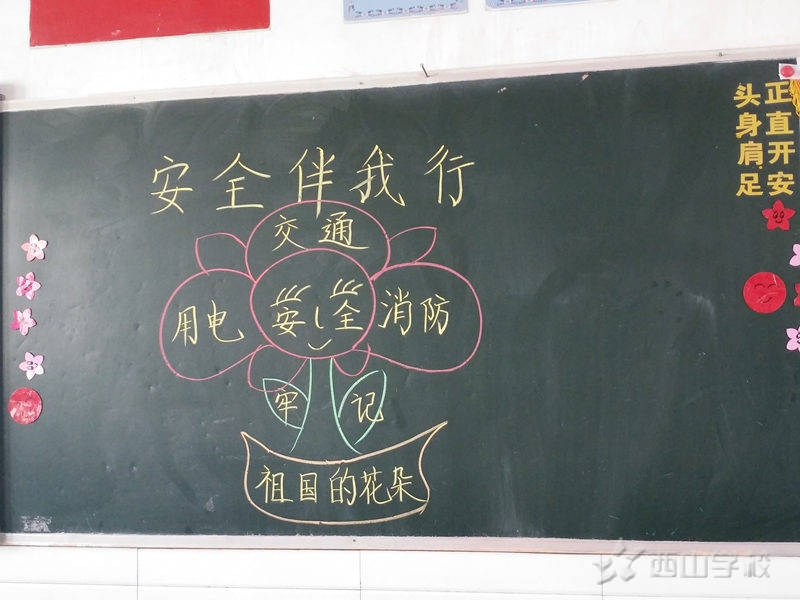 安全伴我行
交通
用电
安全
消防
牢记
祖国的花朵
头正
身直
肩开
足安
西山学校